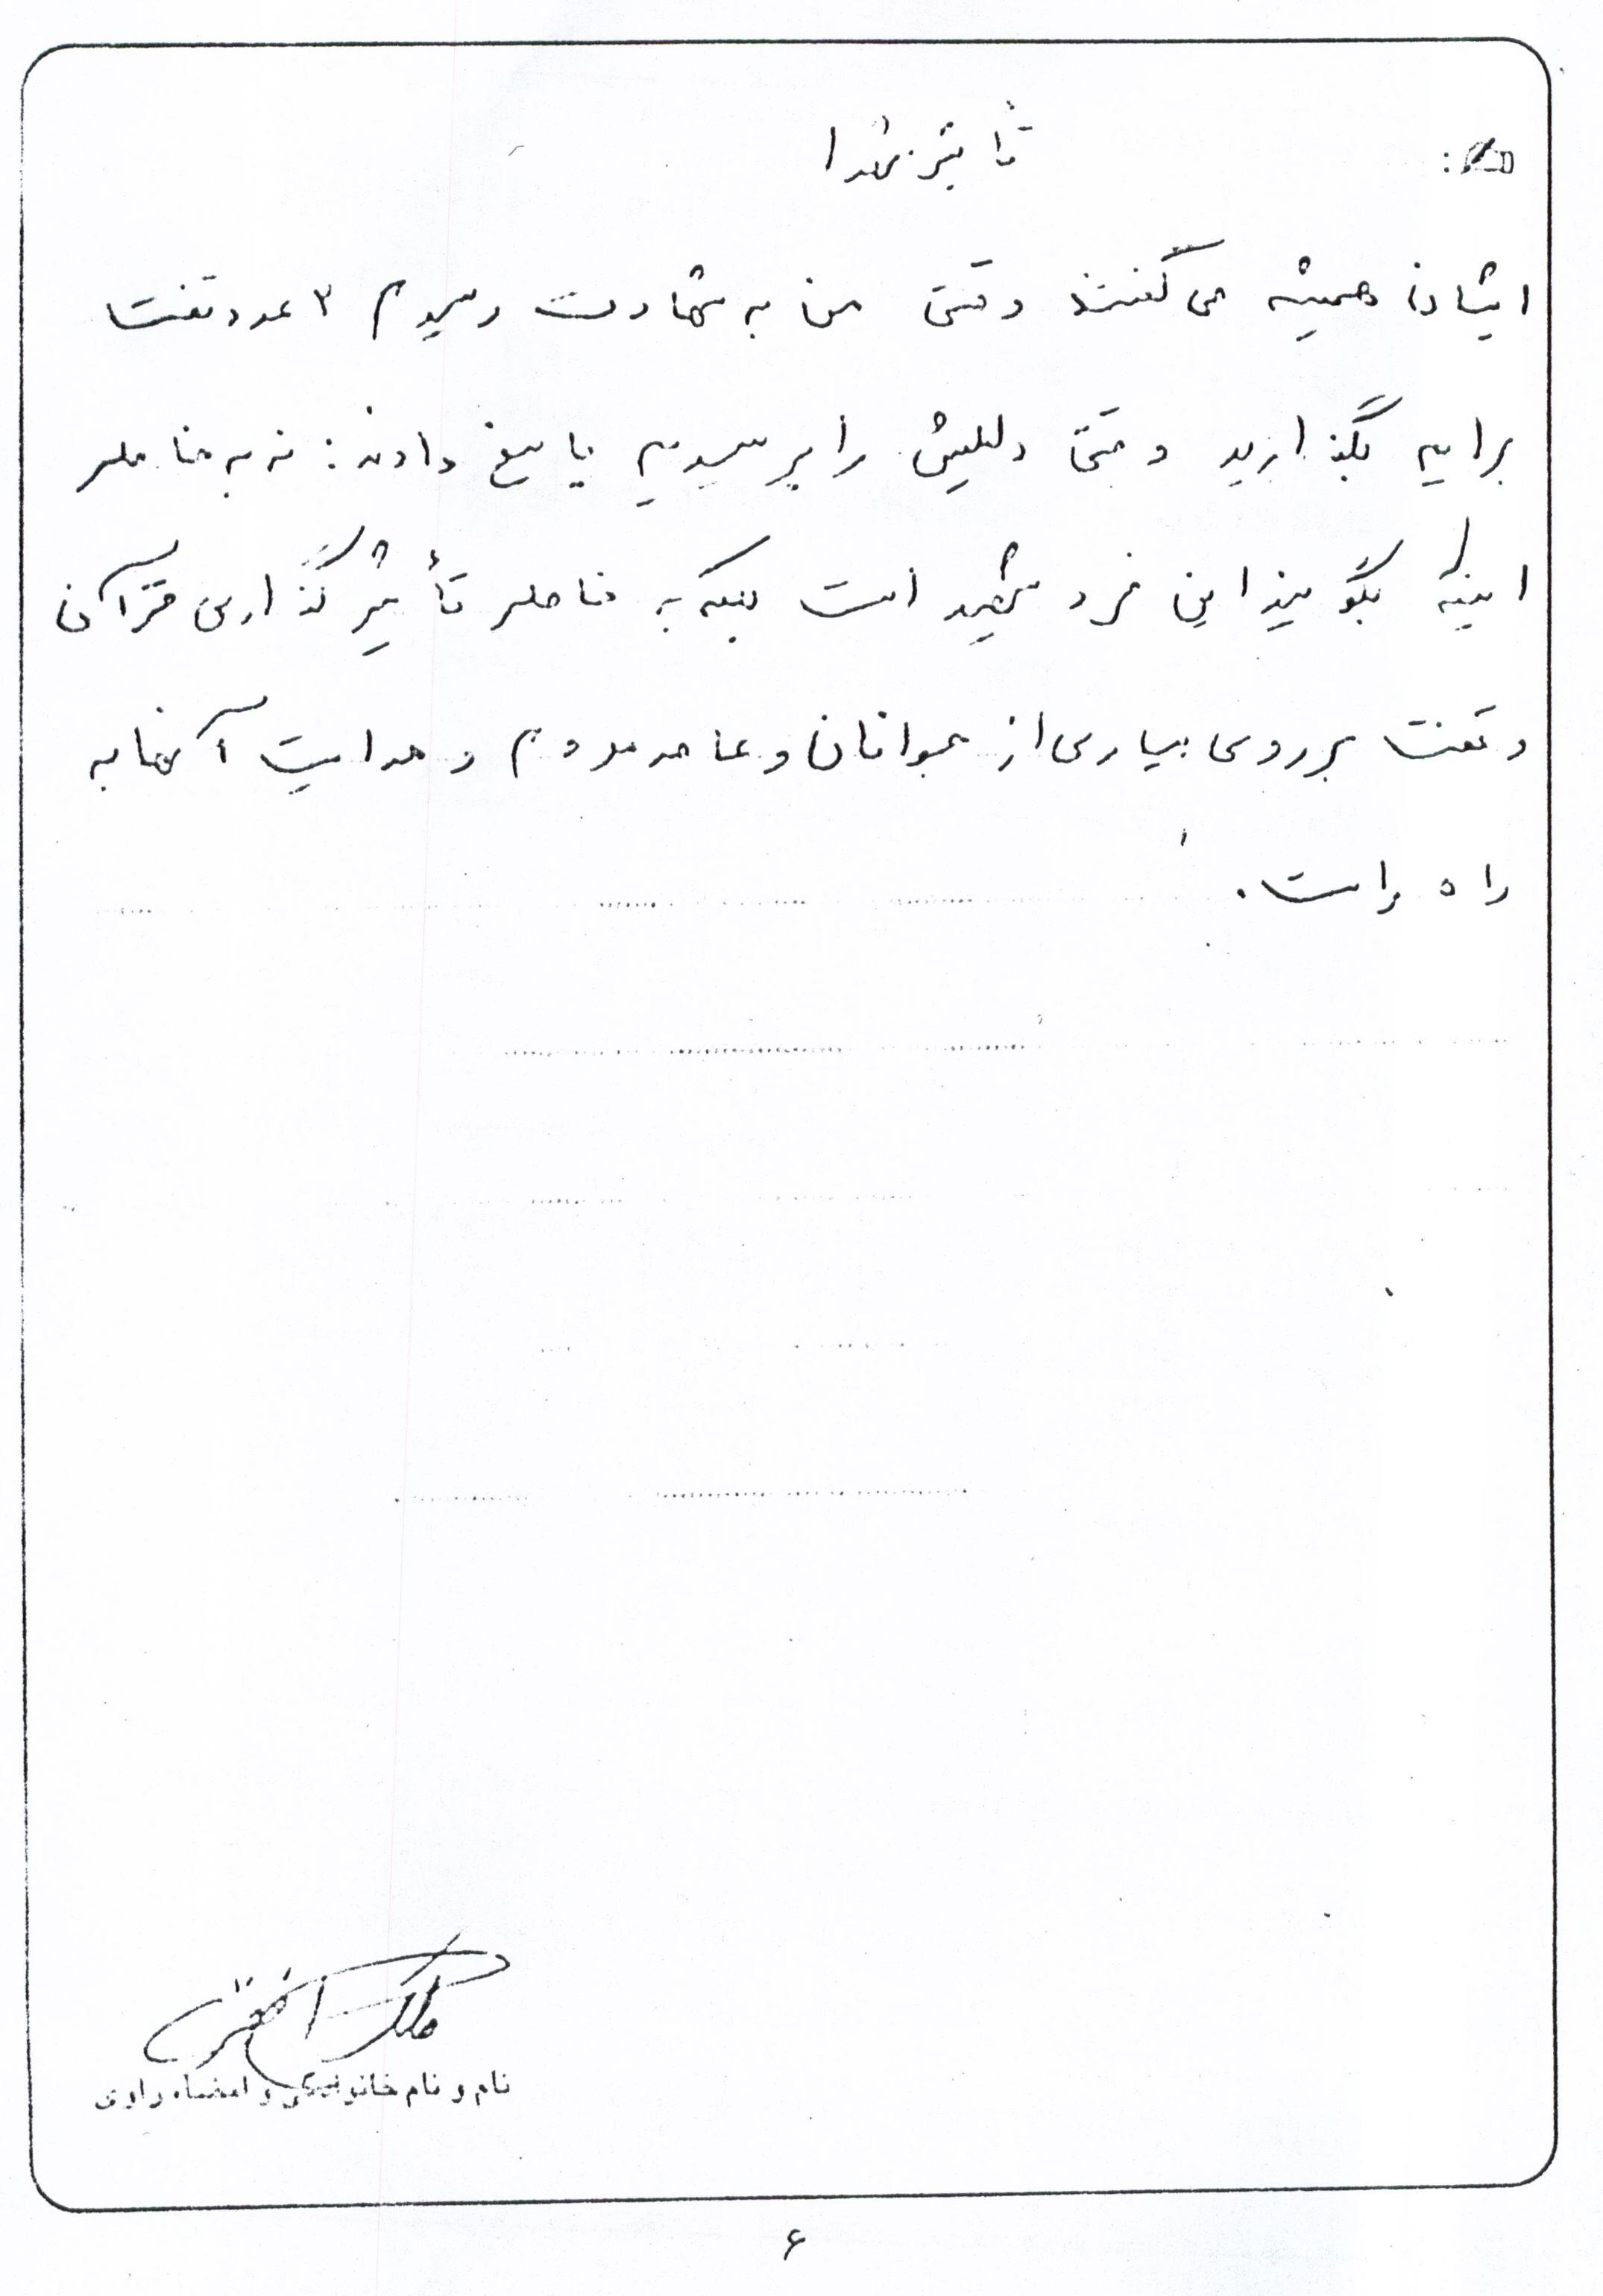 تأثیر شهدا
ایشان همیشه می گفتند وقتی من به شهادت رسیدم ۳ عدد تفت
برایم بگذارید وقتی دلیلش را پرسیدیم پاسخ دادند: نه به خاطر
اینکه بگویند این فرد شهید است بلکه به خاطر تأثیرگذاری قرآن
و تفت بر روی بسیاری از جوانان و عامه مردم و هدایت آنها به
راه راست.
نام و نام خانوادگی و امضاء راوی
۶